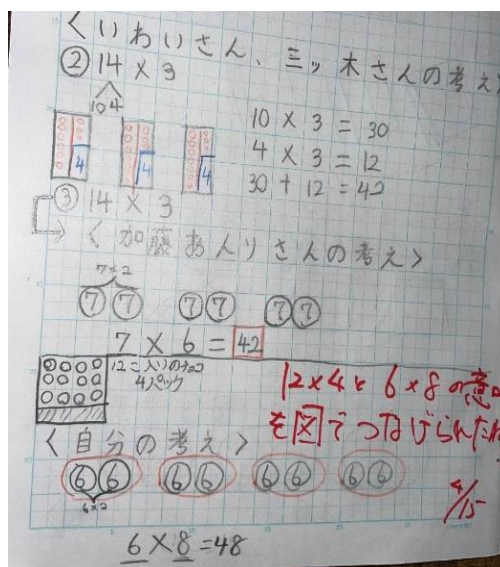 ＜いわいさん、三ッ木さんの考え＞
② 14 × 3
10 4
10 × 3 = 30
4 × 3 = 12
30 + 12 = 42
4 4 4
③ 14 × 3
＜加藤あんりさんの考え＞
7×2
⑦⑦ ⑦⑦ ⑦⑦
7 × 6 = 42
12こ入りのチョコ
4パック
12×4と6×8の意
を図でつなげられたね
＜自分の考え＞
⑥⑥ ⑥⑥ ⑥⑥ ⑥⑥
6×2
4/15
6×8=48